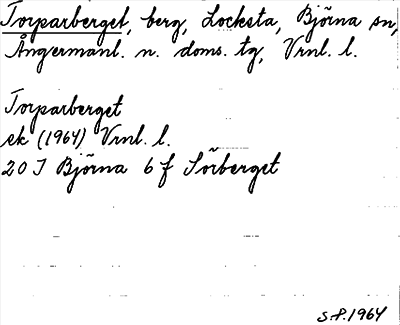 Torparberget, berg, Locksta, Björna sn,
Ångermanl. n. doms. tg, Vrnl. l.
Torparberget
ek (1964) Vrnl. l.
20 J Björna 6 f Sörberget
S.P. 1964